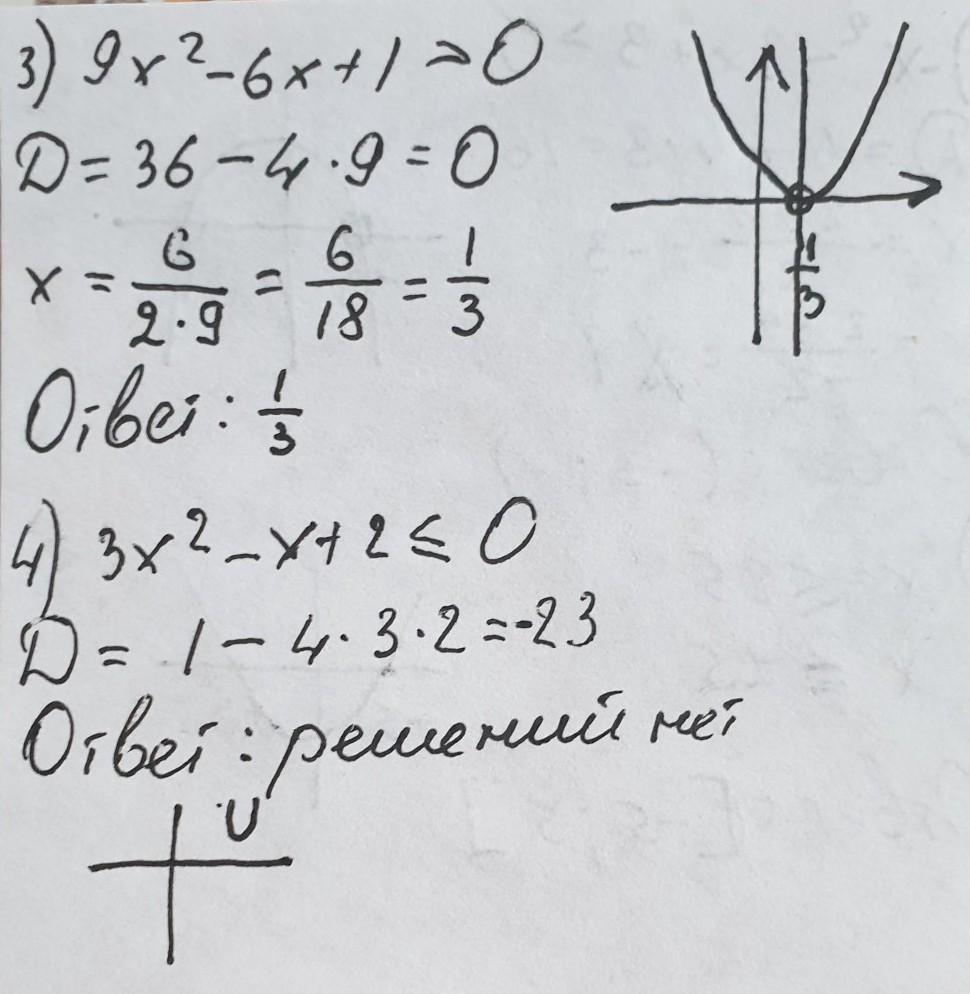 3) 9x² - 6x + 1 > 0
D = 36 - 4 · 9 = 0
x = 6/(2·9) = 6/18 = 1/3
1/3
Ответ: 1/3
4) 3x² - x + 2 ≤ 0
D = 1 - 4 · 3 · 2 = -23
Ответ: решений нет